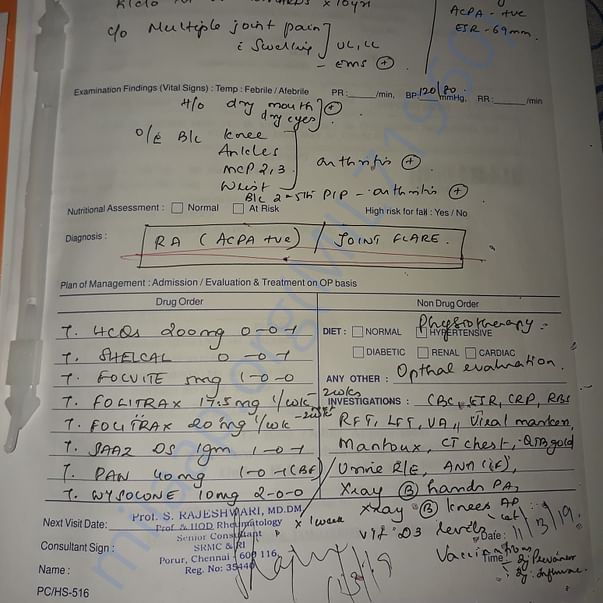 x 10yr
c/o Multiple joint pain
c̄ swelling ] UL, LL
- EMS ⊕
ACPA - +ve
ESR - 69mm
Examination Findings (Vital Signs) : Temp : Febrile / Afebrile PR : ____ /min, BP 120/80 mmHg, RR : ____ /min
H/o dry mouth
dry eyes ] ⊕
O/E B/L knee
Ankles
MCP 2,3
Wrist ] arthritis ⊕
B/L 2-5th PIP - arthritis ⊕
Nutritional Assessment : Normal At Risk High risk for fall : Yes / No
Diagnosis : RA ( ACPA +ve) / JOINT FLARE.
Plan of Management : Admission / Evaluation & Treatment on OP basis
Drug Order
T. HCQs 200mg 0-0-1
T. SHELCAL 0-0-1
T. FOLVITE 5mg 1-0-0
T. FOLITRAX 17.5mg 1/wk - 2wks
T. FOLITRAX 20mg 1/wk
T. SAAZ DS 1gm 1-0-1
T. PAN 40mg 1-0-1 (BF)
T. WYSOLONE 10mg 2-0-0
x 1week
Non Drug Order
Physiotherapy
DIET : NORMAL HYPERTENSIVE
DIABETIC RENAL CARDIAC
ANY OTHER : Opthal evaluation.
INVESTIGATIONS : CBC, ESR, CRP, RBS
RFT, LFT, UA, Viral markers,
Mantoux, CT chest, QTB gold
Urine R/E, ANA (IF),
Xray Ⓑ hands PA,
Xray Ⓑ knees AP
vit D3 levels
Vaccination
Next Visit Date:
Prof. S. RAJESHWARI, MD.DM
Prof. & HOD Rheumatology
Senior Consultant
SRMC & RI
Porur, Chennai - 600 116
Reg. No: 35440
Consultant Sign :
Name :
Date :
Time :
PC/HS-516